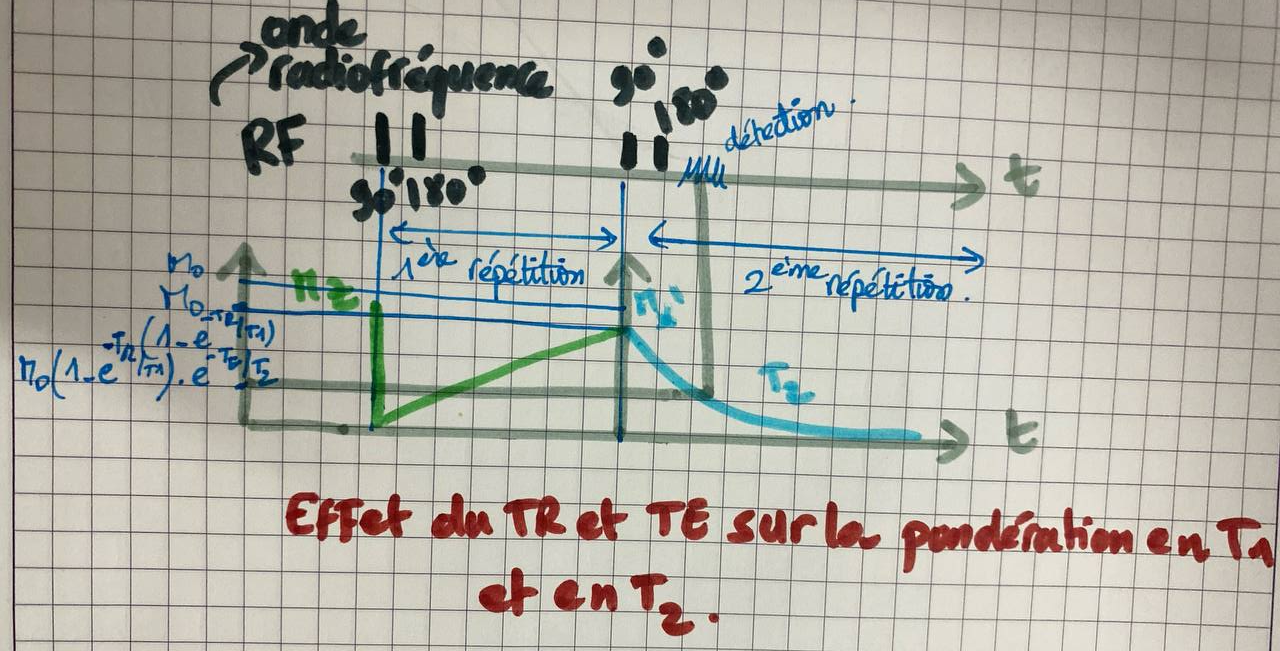 onde
radiofréquence
90° 180°
RF
détection
t
90° 180°
1ère répétition
2ème répétition.
M0
Mz
M0(1-e^-TR/T1)
M0(1-e^-TR/T1).e^-TE/T2
T2
t
Effet du TR et TE sur la pondération en T1
et en T2.